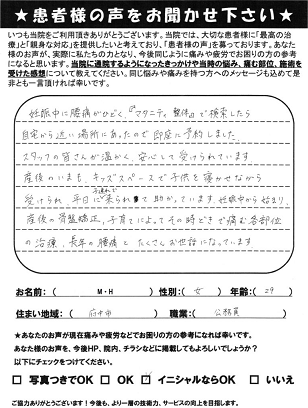 ★患者様の声をお聞かせ下さい★
いつも当院をご利用頂きありがとうございます。当院では、大切な患者様に「最高の治
療」と「親身な対応」を提供したいと考えており、「患者様の声」を募っております。あなた
様のお声が、実際に私たちの力となり、今後同じように痛みや疲労でお困りの方の参考
になると思います。当院に通院するようになったきっかけや当時の悩み、痛む部位、施術を
受けた感想について教えてください。同じ悩みや痛みを持つ方へのメッセージも込めて是
非とも一言頂ければ幸いです。
妊娠中に腰痛がひどく、『マタニティ 整体』で検索したら
自宅から近い場所にあったので即座に予約しました
スタッフの皆さんが温かく、安心して受けられています
産後のいまも、キッズスペースで子供を寝かせながら
受けられ、平日に子連れで来られて助かっています。妊娠中から始まり、
産後の骨盤矯正、子育てによってその時どきで痛む各部位
の治療、長年の腰痛と たくさんお世話になっています
お名前:( M・H ) 性別:( 女 ) 年齢:( 29 )
住まい地域:( 府中市 ) 職業:( 公務員 )
★あなたのお声が現在痛みや疲労などでお困りの方の参考になれば幸いです。
あなた様のお声を、今後HP、院内、チラシなどに掲載してもよろしいでしょうか?
以下にチェックをつけてください。
□ 写真つきでOK □ OK ☑ イニシャルならOK □ いいえ
ご協力ありがとうございます!今後も、より一層の技術力、サービスの向上を目指します。